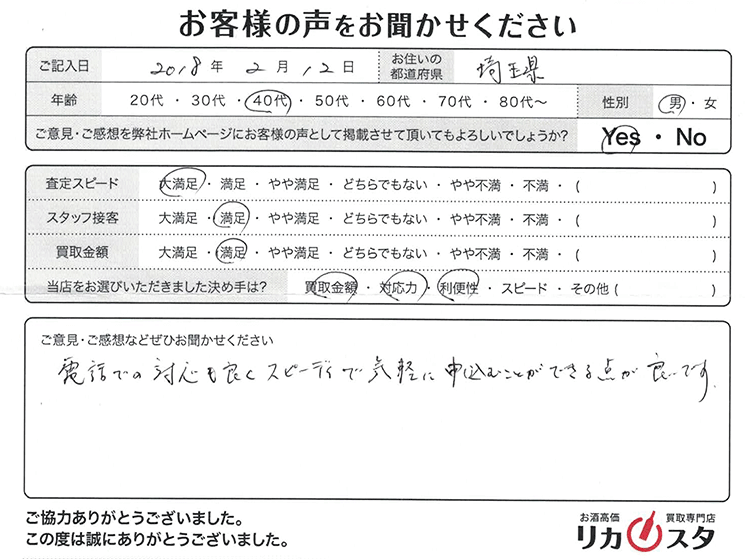 お客様の声をお聞かせください
ご記入日 2018年 2月 12日 お住いの都道府県 埼玉県
年齢 20代・30代・40代・50代・60代・70代・80代〜 性別 男・女
ご意見・ご感想を弊社ホームページにお客様の声として掲載させて頂いてもよろしいでしょうか? Yes・No
査定スピード 大満足・満足・やや満足・どちらでもない・やや不満・不満・( )
スタッフ接客 大満足・満足・やや満足・どちらでもない・やや不満・不満・( )
買取金額 大満足・満足・やや満足・どちらでもない・やや不満・不満・( )
当店をお選びいただきました決め手は? 買取金額・対応力・利便性・スピード・その他( )
ご意見・ご感想などぜひお聞かせください
電話での対応も良くスピーディで気軽に申込むことができる点が良いです
ご協力ありがとうございました。
この度は誠にありがとうございました。
お酒高価 買取専門店
リカスタ